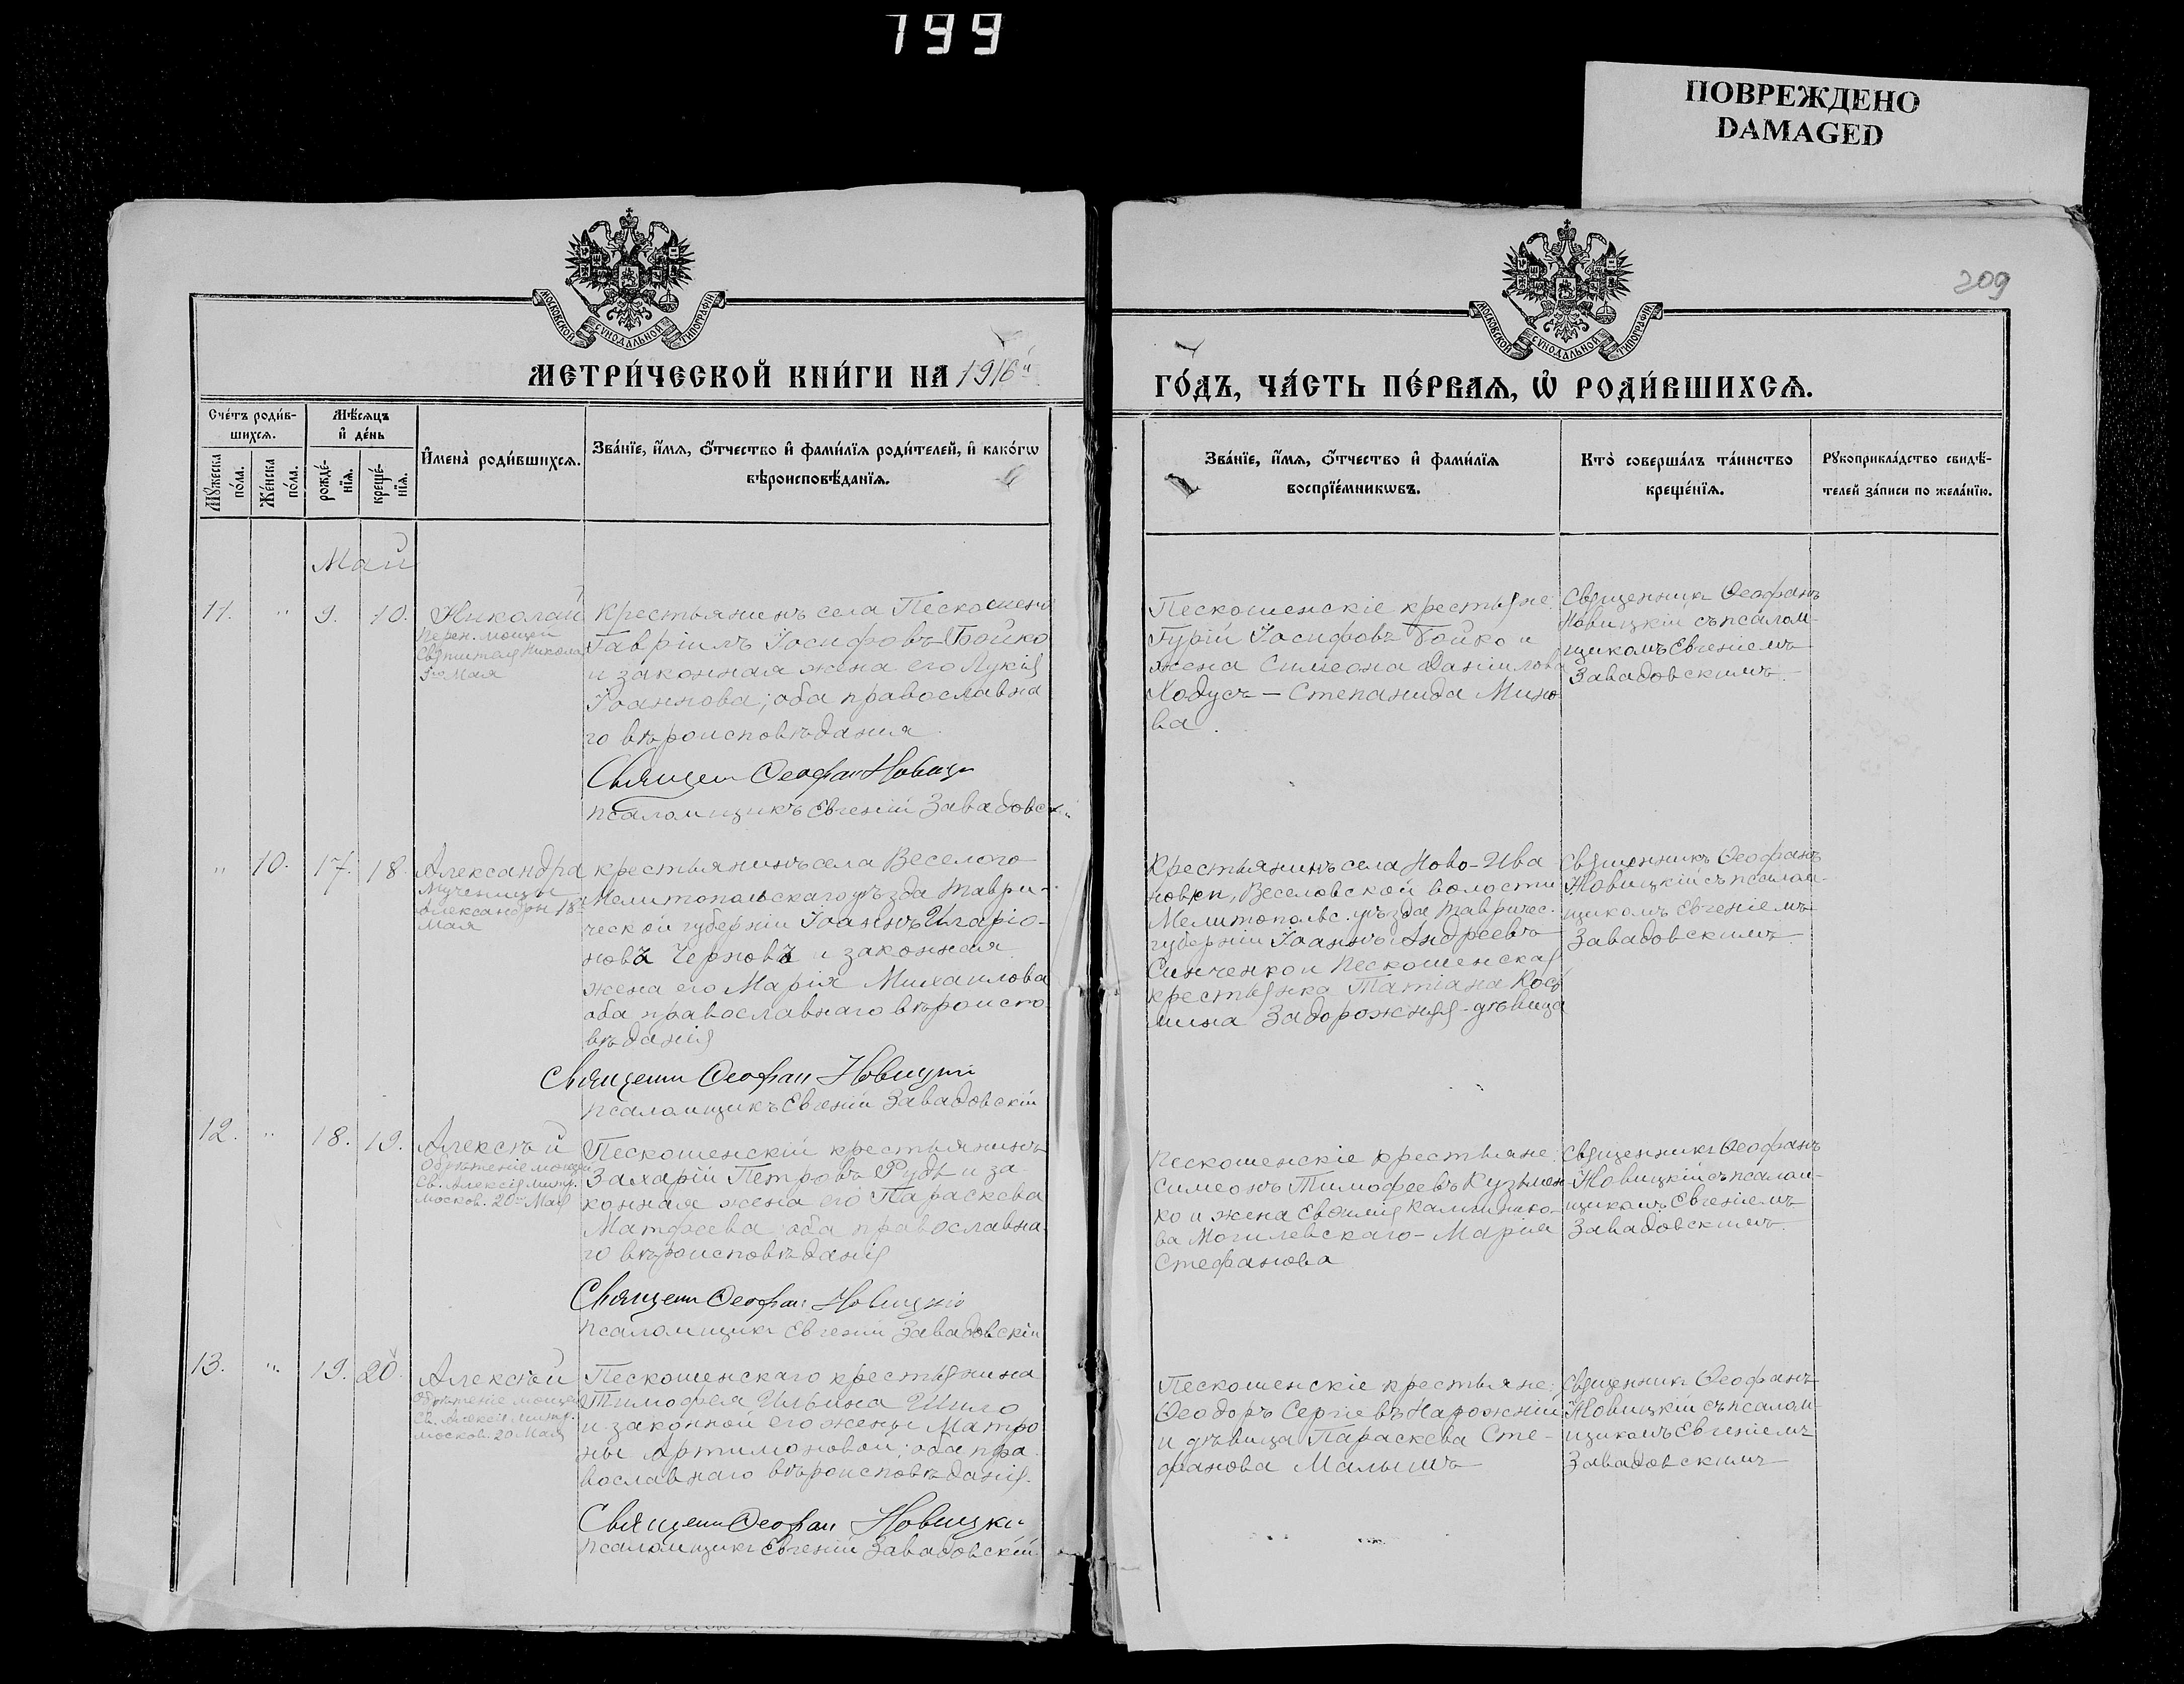 199
ПОВРЕЖДЕНО
DAMAGED
209
МОСКОВСКОЙ СѴНОДАЛЬНОЙ ТИПОГРАФІИ
МОСКОВСКОЙ СѴНОДАЛЬНОЙ ТИПОГРАФІИ
МЕТРИ́ЧЕСКОЙ КНИ́ГИ НА 1916й
ГО́ДЪ, ЧА́СТЬ ПЕ́РВАѦ, Ѽ РОДИ́ВШИХСѦ.
Сче́тъ роди́в-
шихсѧ.
Мѣ́сѧцъ
и҆ де́нь
Мꙋ́жеска
по́ла.
Же́нска
по́ла.
рожде́-
нїѧ.
креще́-
нїѧ.
И҆мена̀ роди́вшихсѧ.
Зва́нїе, и҆́мѧ, ѻ҆́тчество и҆ фами́лїѧ роди́телей, и҆ како́гѡ
вѣроисповѣ́данїѧ.
Зва́нїе, и҆́мѧ, ѻ҆́тчество и҆ фами́лїѧ
воспрїе́мникѡвъ.
Кто̀ соверша́лъ та́инство
креще́нїѧ.
Рꙋкоприкла́дство свидѣ́-
телей за́писи по жела́нїю.
Май
11. " 9. 10. Николай
Перен. мощей
Святителя Никола
9го Мая
Крестьянинъ села Пескошено
Гавріилъ Іосифовъ Бойко
и законная жена его Лукія
Іоаннова; оба православна
го вѣроисповѣданія.
Священ Ѳеофан Новицк
Псаломщикъ Евгеній Завадовскі
Пескошенскіе крестьяне:
Гурій Іосифовъ Бойко и
жена Симеона Даніилова
Ходусъ – Степанида Мино
ва.
Священникъ Ѳеофанъ
Новицкій съ псалом-
щикомъ Евгеніемъ
Завадовскимъ.
" 10. 17. 18. Александра
Мученицы
Александры 18го
Мая
крестьянинъ села Веселого
Мелитопольскаго уѣзда Таври-
ческой губерніи Іоаннъ Иларіо-
новъ Черновъ и законная
жена его Марія Михаилова
оба православнаго вѣроиспо
вѣданія
Священн Ѳеофан Новицкій
Псаломщикъ Евгеній Завадовскій
Крестьянинъ села Ново-Ива
новки, Веселовской волости
Мелитопольс. уѣзда Тавричес.
губерніи Іоаннъ Андреевъ
Синченко и Пескошенская
крестьянка Татіана Косъ
мина Задорожняя - дѣвица
Священникъ Ѳеофанъ
Новицкій съ псалом-
щикомъ Евгеніемъ
Завадовскимъ.
12. " 18. 19. Алексѣй
Обрѣтеніе мощей
Св. Алексія митр.
Москов. 20го Мая
Пескошенскій крестьянинъ
Захарій Петровъ Рудь и за-
конная жена его Параскева
Матѳеева оба православна-
го вѣроисповѣданія
Священн Ѳеофан Новицкій
Псаломщикъ Евгеній Завадовскій
Пескошенскіе крестьяне:
Симеонъ Тимофеевъ Кузьмен
ко и жена Евѳимія Каллинико-
ва Могилевскаго – Марія
Стефанова
Священникъ Ѳеофанъ
Новицкій съ псалом-
щикомъ Евгеніемъ
Завадовскимъ.
13. " 19. 20. Алексѣй
Обрѣтеніе мощей
Св. Алексія митр.
Москов. 20 Мая
Пескошенскаго крестьянина
Тимофея Ильина Шило
и законной его жены Матро
ны Артимоновой; оба пра-
вославнаго вѣроисповѣданія.
Священн Ѳеофан Новицки
Псаломщикъ Евгеній Завадовскій
Пескошенскіе крестьяне:
Ѳеодоръ Сергіевъ Нарожній
и дѣвица Параскева Сте-
фанова Малышъ
Священникъ Ѳеофанъ
Новицкій съ псалом-
щикомъ Евгеніемъ
Завадовскимъ